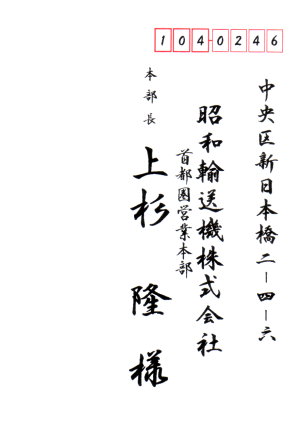 104-0246
中央区新日本橋二ー四ー六
昭和輸送機株式会社
首都圏営業本部
本部長
上杉 隆 様